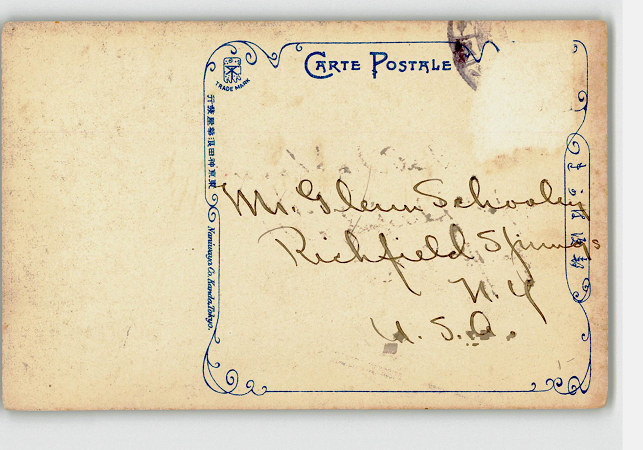 CARTE POSTALE
TRADE MARK
東京神田浪華屋發行
Naniwaya Co. Kanda, Tokyo.
Mr. Glenn Schooley
Richfield Springs
N. Y
U. S. A.